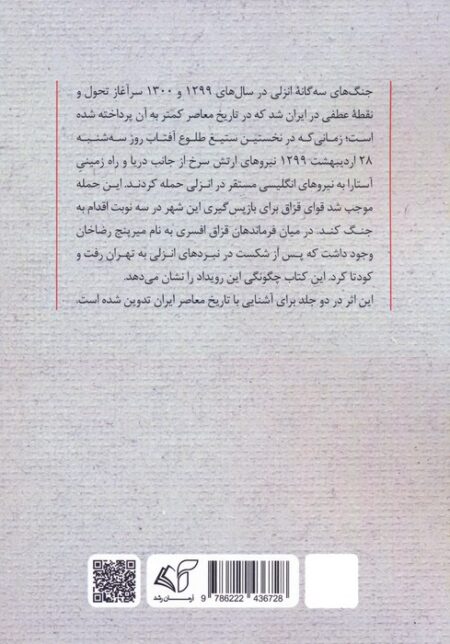 جنگ‌های سه‌گانهٔ انزلی در سال‌های ۱۲۹۹ و ۱۳۰۰ سرآغاز تحول و
نقطهٔ عطفی در ایران شد که در تاریخ معاصر کمتر به آن پرداخته شده
است؛ زمانی‌که در نخستین ستیغ طلوع آفتاب روز سه‌شنبه
۲۸ اردیبهشت ۱۲۹۹ نیروهای ارتش سرخ از جانب دریا و راه زمینیِ
آستارا به نیروهای انگلیسی مستقر در انزلی حمله کردنـد. این حمله
موجب شد قوای قزاق برای بازپس‌گیری این شهر در سه نوبت اقدام به
جنگ کنـد. در میان فرماندهان قزاق افسری به نام میرپنج رضاخان
وجود داشت که پس از شکست در نبردهای انزلی به تهران رفت و
کودتا کرد. این کتاب چگونگی این رویداد را نشان می‌دهد.
این اثر در دو جلد برای آشنایی با تاریخ معاصر ایران تدوین شده است.
آرمان رشد
9 786222 436728